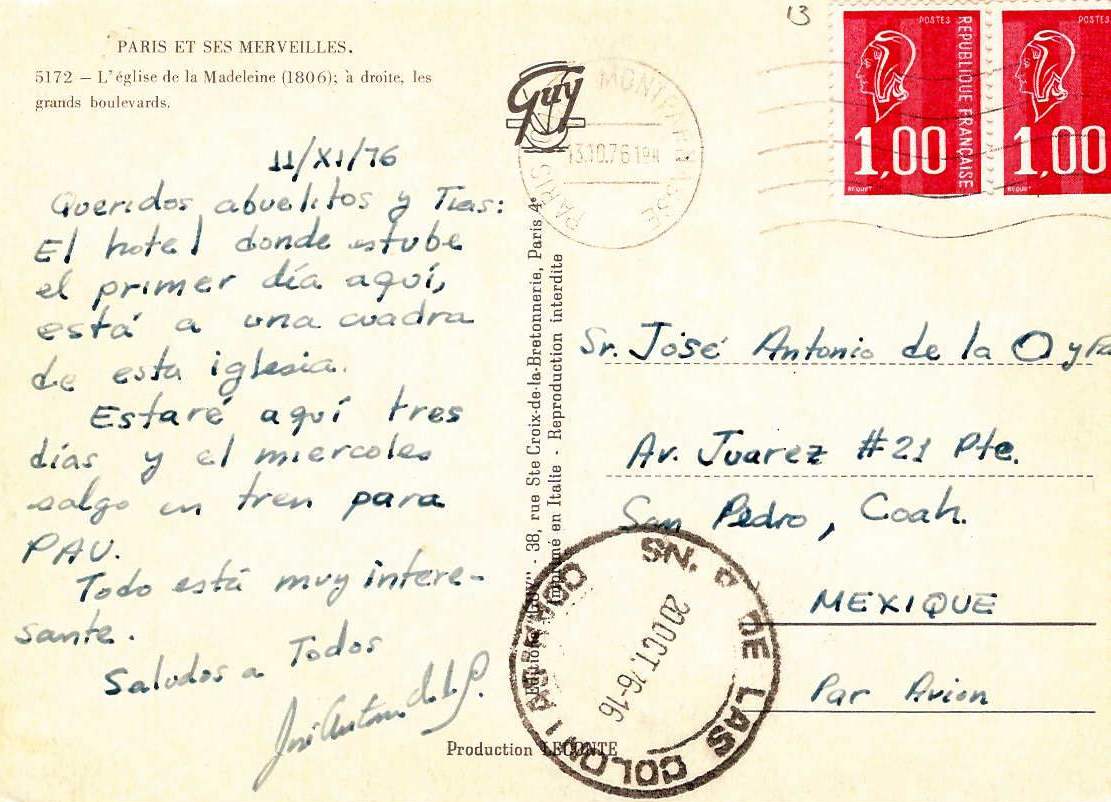 13
PARIS ET SES MERVEILLES.
5172 – L'église de la Madeleine (1806); à droite, les
grands boulevards.
11/XI/76
Queridos abuelitos y Tias:
El hotel donde estube
el primer día aquí,
está a una cuadra
de esta iglesia.
Estaré aquí tres
días y el miercoles
salgo en tren para
PAU.
Todo está muy intere-
sante.
Saludos a Todos
José Antonio de la P.
Guy
PARIS MONTPARNASSE
13.10.76 19H
38, rue Ste Croix-de-la-Bretonnerie, Paris 4e
Imprimé en Italie - Reproduction interdite
Production LECONTE
POSTES
REPUBLIQUE FRANÇAISE
1,00
BEQUET
POSTES
1,00
BEQUET
Sr. José Antonio de la O y
Av. Juarez #21 Pte.
San Pedro, Coah.
MEXIQUE
Par Avion
DE LAS COLONIAS
20 OCT. 76-16